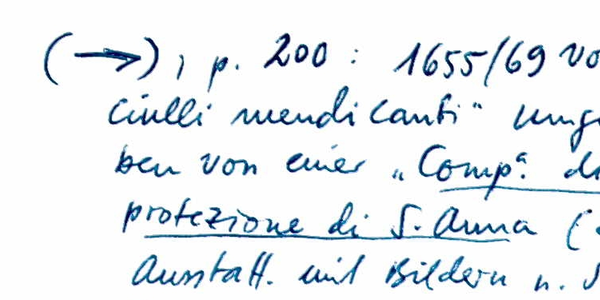 (→), p. 200 : 1655/69 vo
ciulli mendicanti" umge
ben von einer „Comp.ª di
protezione di S. Anna (
Ausstatt. mit Bildern u.